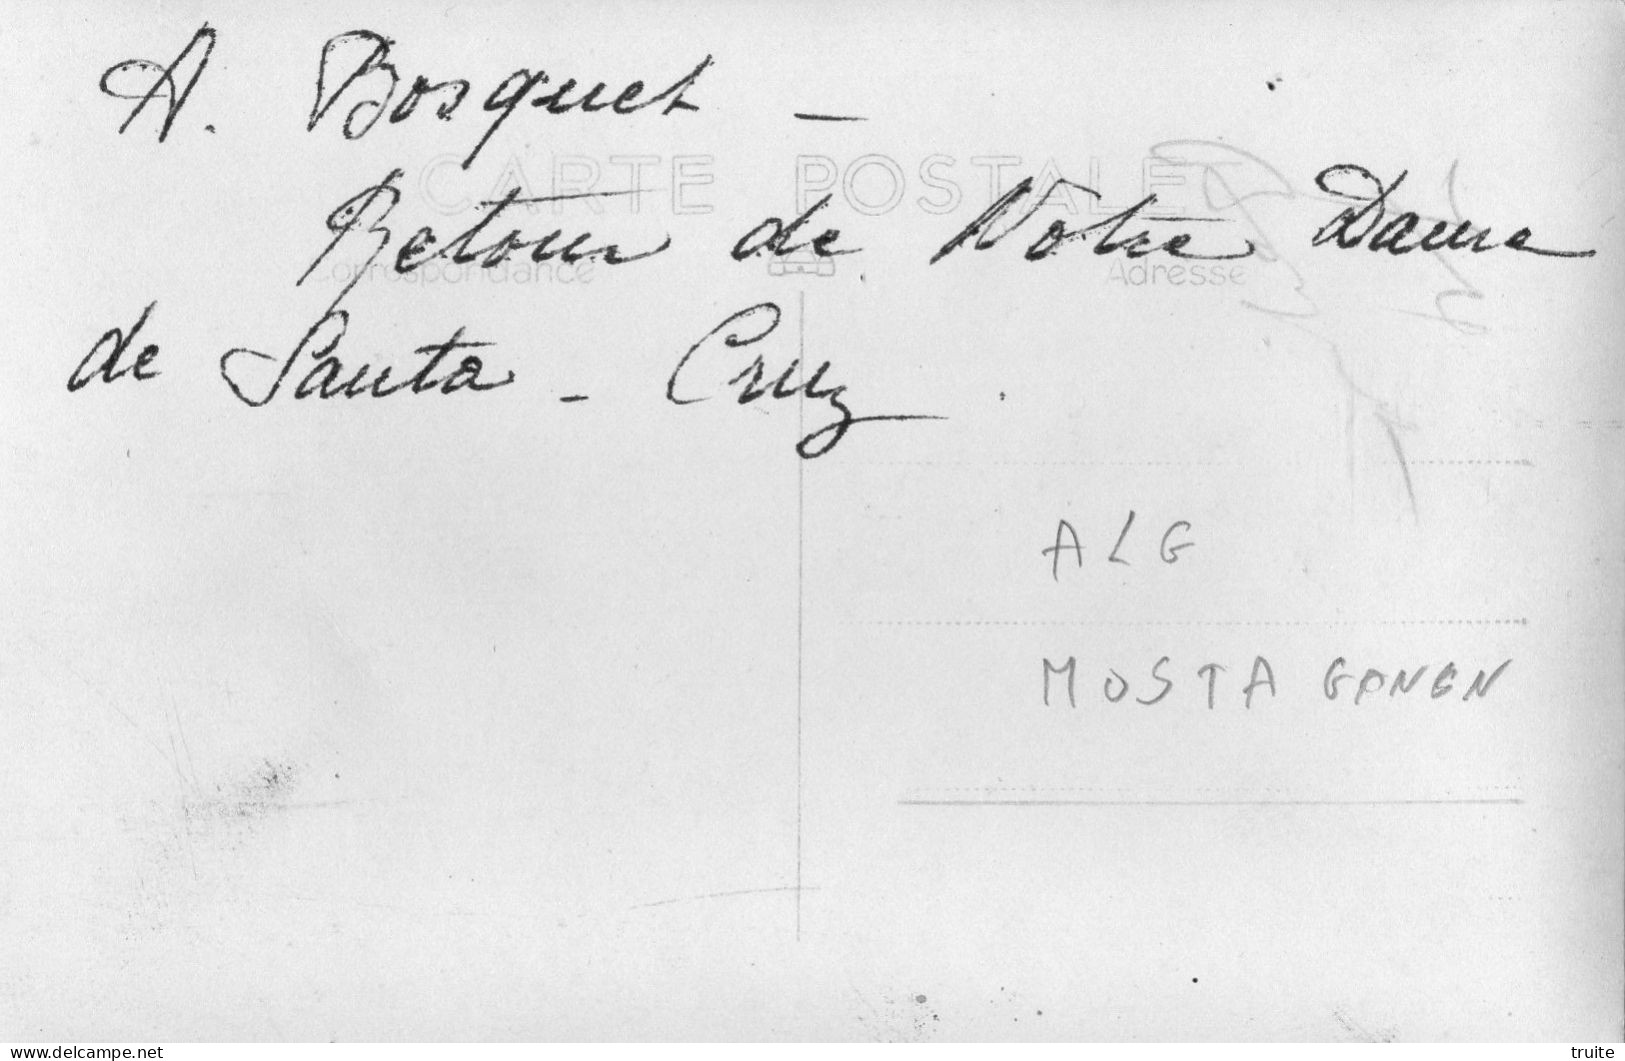 A. Bosquet –
CARTE POSTALE
Retour de Notre Dame
Correspondance
Adresse
de Santa - Cruz.
ALG
MOSTA GANEN
delcampe.net
truite